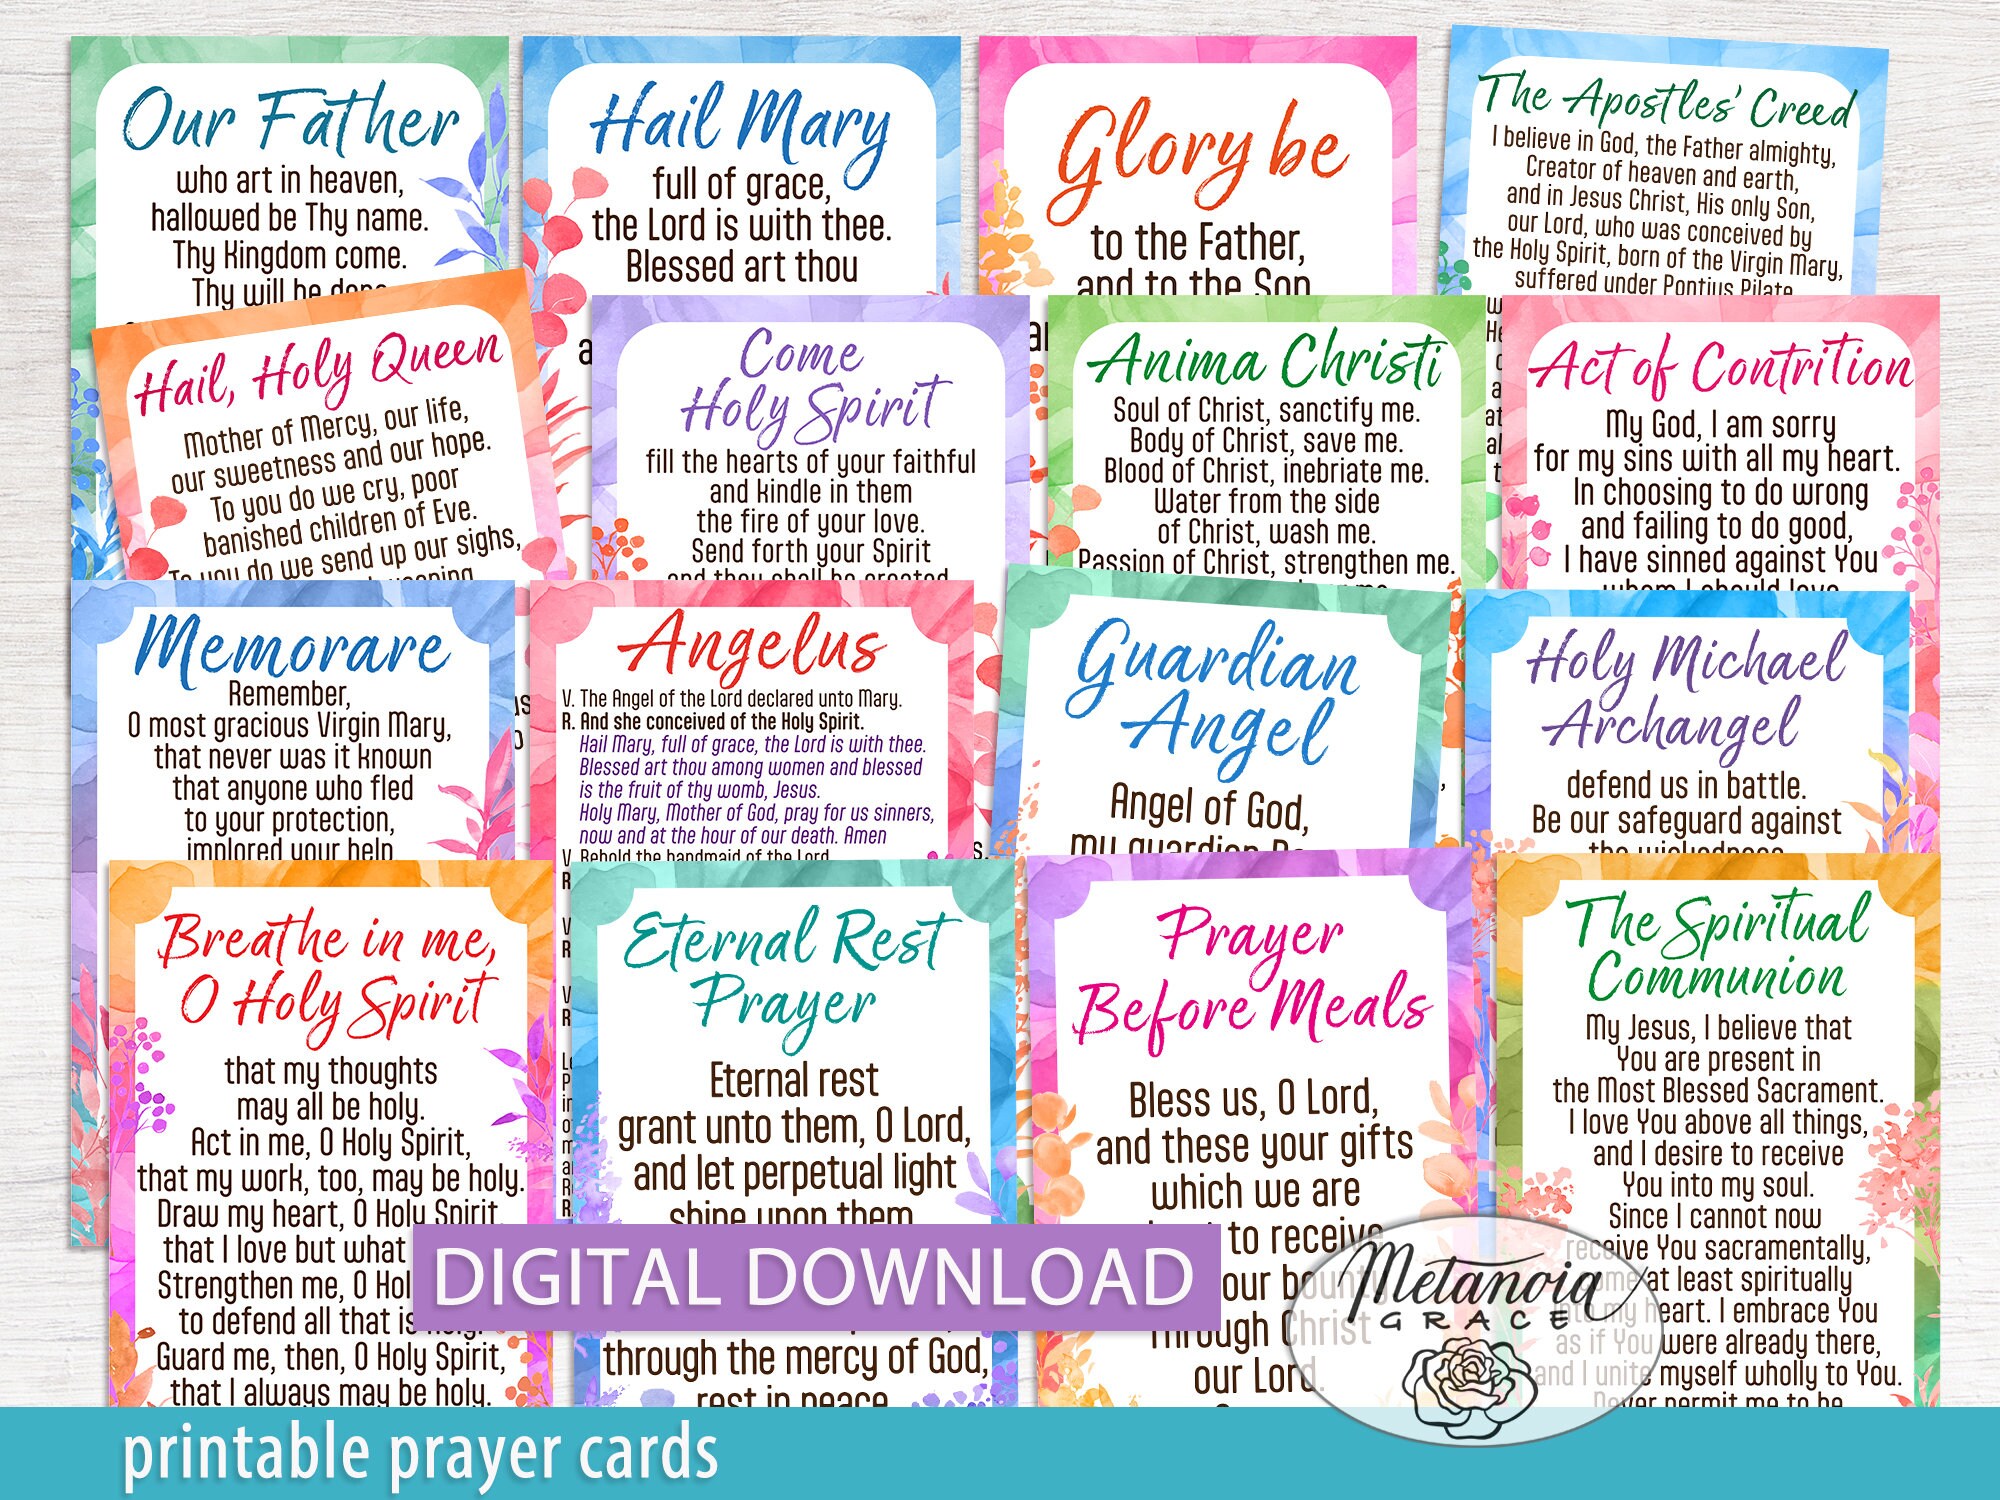 Our Father
who art in heaven,
hallowed be Thy name.
Thy Kingdom come.
Thy will be done
Hail Mary
full of grace,
the Lord is with thee.
Blessed art thou
Glory be
to the Father,
and to the Son
The Apostles' Creed
I believe in God, the Father almighty,
Creator of heaven and earth,
and in Jesus Christ, His only Son,
our Lord, who was conceived by
the Holy Spirit, born of the Virgin Mary,
suffered under Pontius Pilate
Hail, Holy Queen
Mother of Mercy, our life,
our sweetness and our hope.
To you do we cry, poor
banished children of Eve.
To you do we send up our sighs,
Come
Holy Spirit
fill the hearts of your faithful
and kindle in them
the fire of your love.
Send forth your Spirit
and they shall be created
Anima Christi
Soul of Christ, sanctify me.
Body of Christ, save me.
Blood of Christ, inebriate me.
Water from the side
of Christ, wash me.
Passion of Christ, strengthen me.
Act of Contrition
My God, I am sorry
for my sins with all my heart.
In choosing to do wrong
and failing to do good,
I have sinned against You
whom I should love
Memorare
Remember,
O most gracious Virgin Mary,
that never was it known
that anyone who fled
to your protection,
implored your help
Angelus
V. The Angel of the Lord declared unto Mary.
R. And she conceived of the Holy Spirit.
Hail Mary, full of grace, the Lord is with thee.
Blessed art thou among women and blessed
is the fruit of thy womb, Jesus.
Holy Mary, Mother of God, pray for us sinners,
now and at the hour of our death. Amen
V. Behold the handmaid of the Lord
Guardian
Angel
Angel of God,
my guardian
Holy Michael
Archangel
defend us in battle.
Be our safeguard against
the wickedness
Breathe in me,
O Holy Spirit
that my thoughts
may all be holy.
Act in me, O Holy Spirit,
that my work, too, may be holy.
Draw my heart, O Holy Spirit,
that I love but what
Strengthen me, O
to defend all that is holy.
Guard me, then, O Holy Spirit,
that I always may be holy.
Eternal Rest
Prayer
Eternal rest
grant unto them, O Lord,
and let perpetual light
shine upon them
through the mercy of God,
rest in peace
Prayer
Before Meals
Bless us, O Lord,
and these your gifts
which we are
to receive
our bounty
Through Christ
our Lord.
The Spiritual
Communion
My Jesus, I believe that
You are present in
the Most Blessed Sacrament.
I love You above all things,
and I desire to receive
You into my soul.
Since I cannot now
receive You sacramentally,
come at least spiritually
into my heart. I embrace You
as if You were already there,
and I unite myself wholly to You.
Never permit me to be
DIGITAL DOWNLOAD
Metanoia
GRACE
printable prayer cards